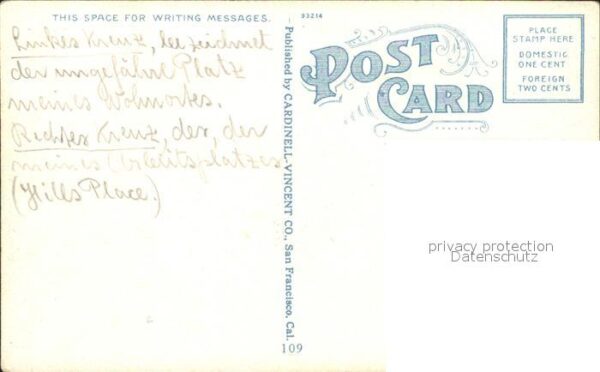 THIS SPACE FOR WRITING MESSAGES.
Linkes Kreuz, bezeichnet
der ungefähre Platz
meines Wohnortes.
Rechtes Kreuz, der, der
meines Arbeitsplatzes
(Hills Place.)
Published by CARDINELL-VINCENT CO., San Francisco, Cal.
109
93214
POST CARD
PLACE
STAMP HERE
DOMESTIC
ONE CENT
FOREIGN
TWO CENTS
privacy protection
Datenschutz